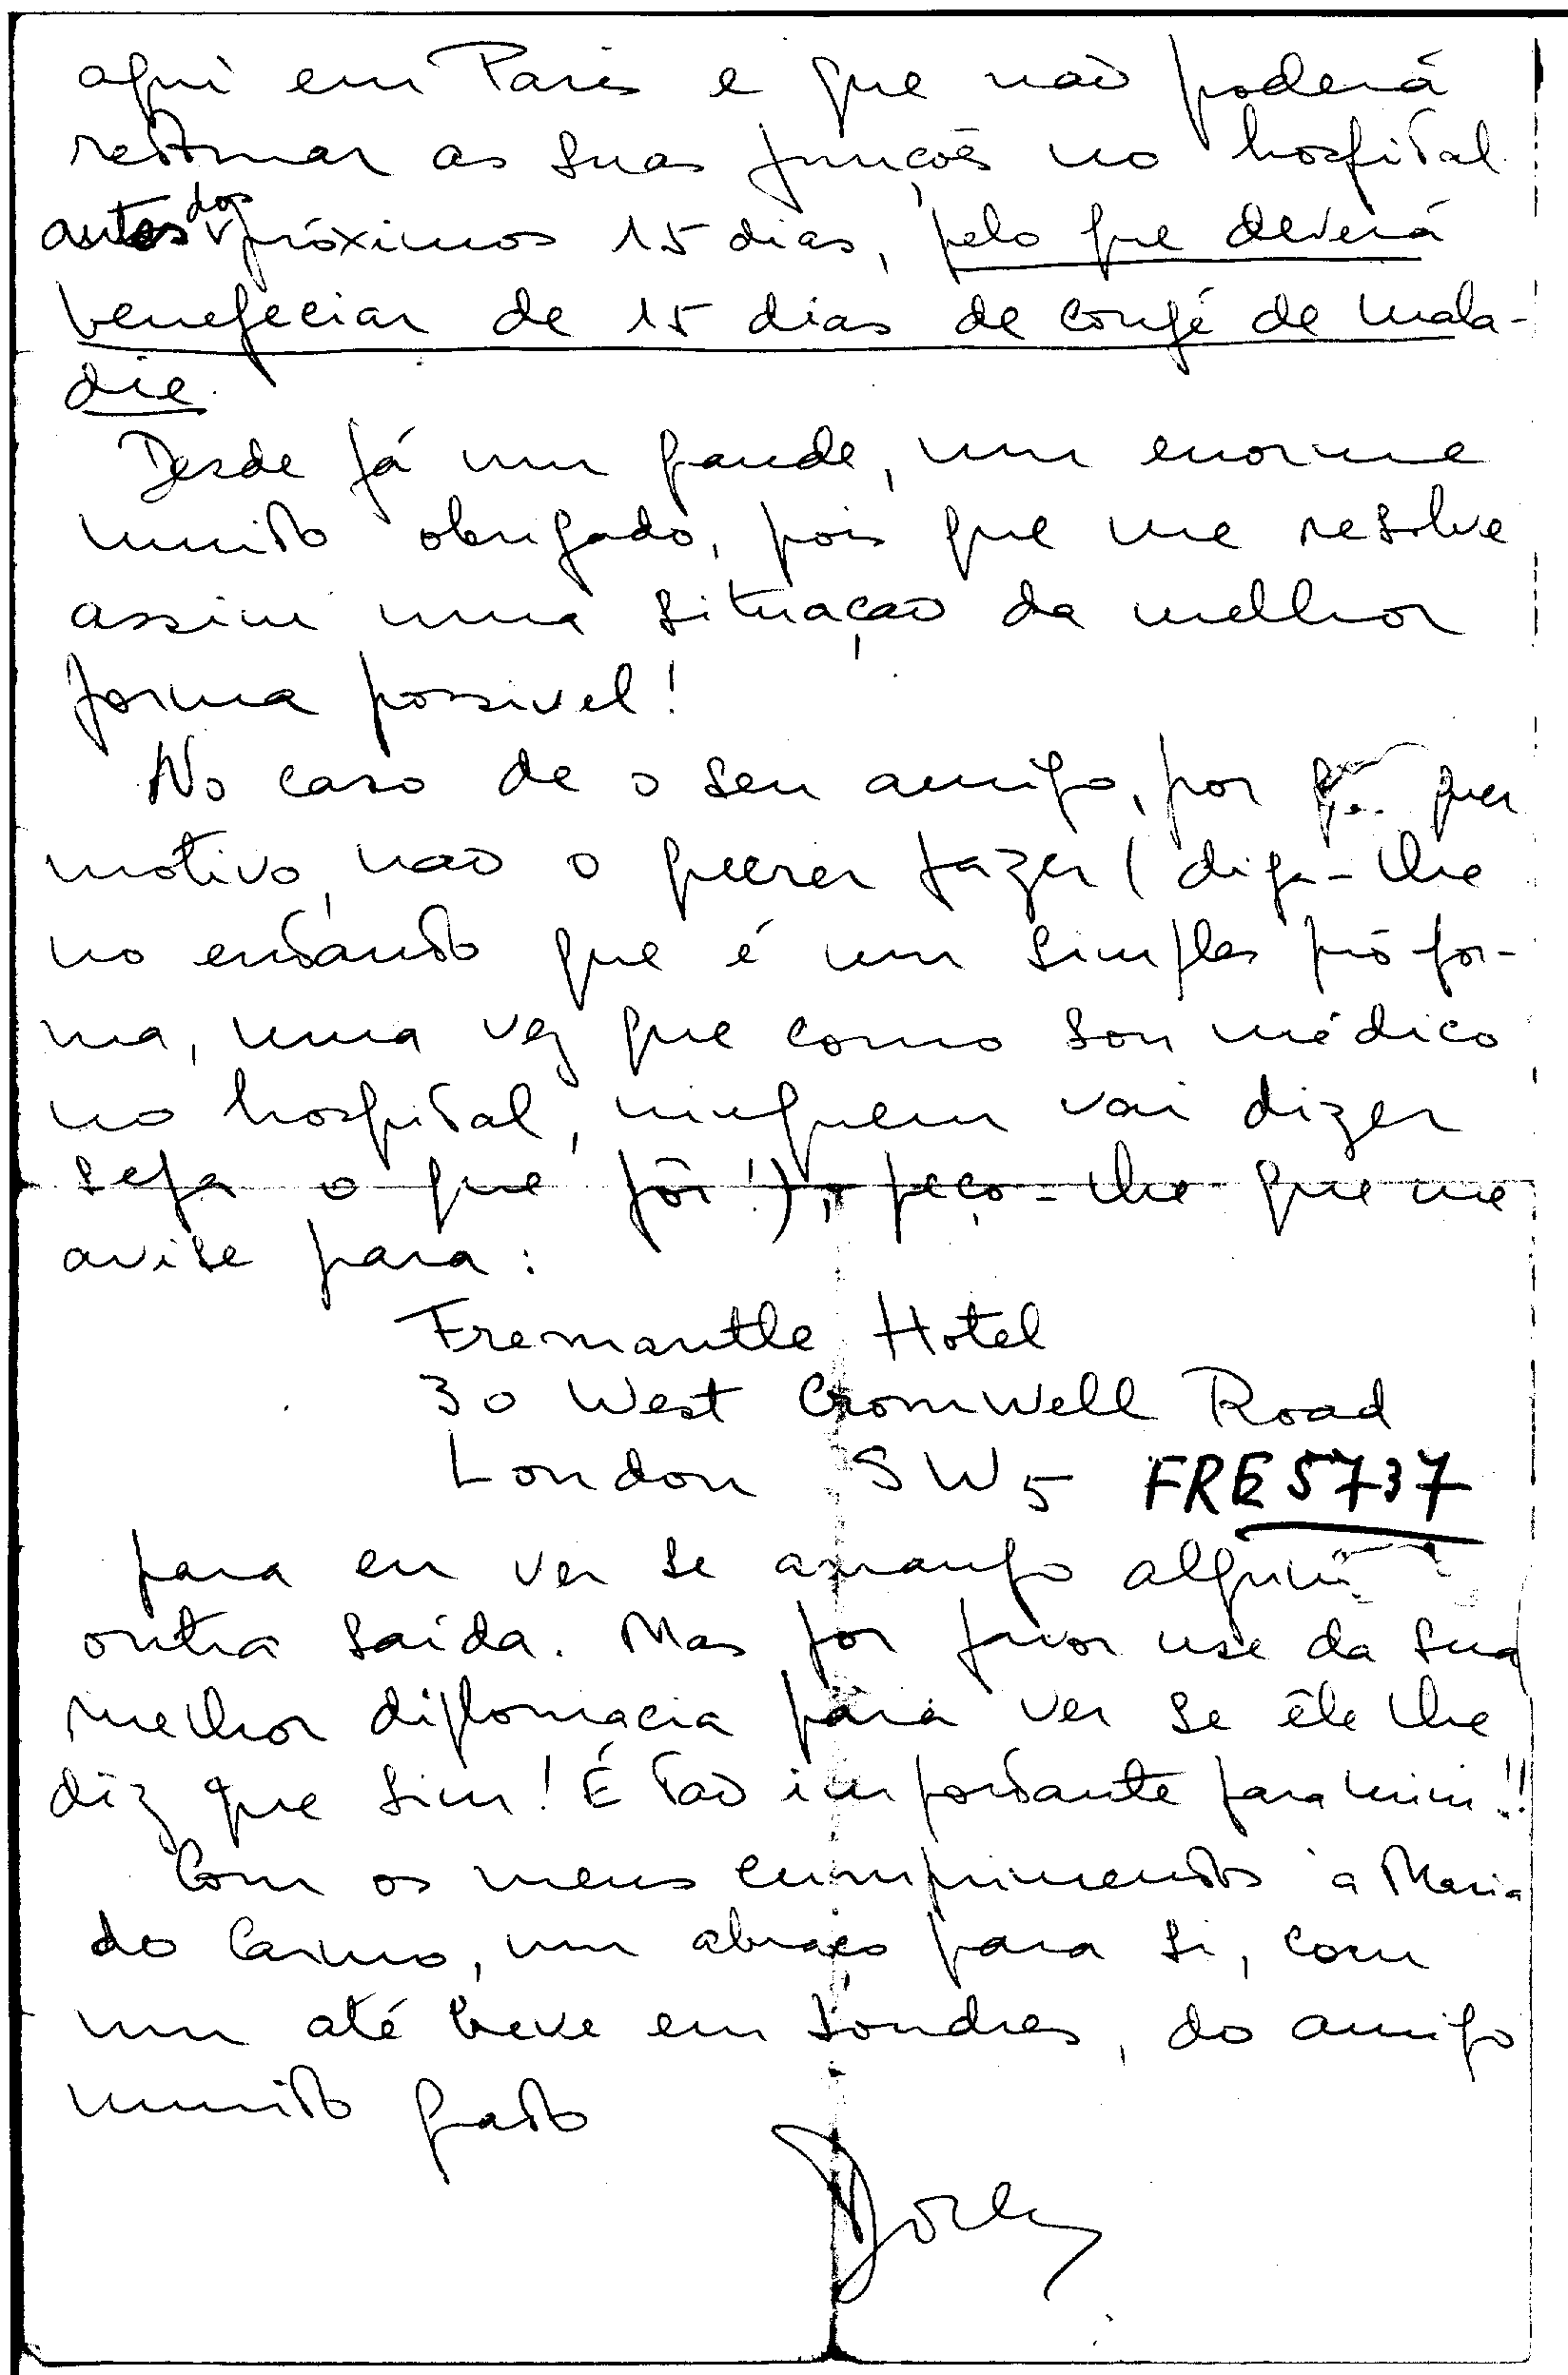 aqui em Paris e que não poderá
retomar as suas funções no hospital
antes dos próximos 15 dias, pelo que deverá
benefeciar de 15 dias de congé de mala-
die.
Desde já um grande, um enorme
muito obrigado, pois que me resolve
assim uma situação da melhor
forma possivel!
No caso de o seu amigo, por quer
motivo, não o querer fazer (diga-lhe
no entanto que é um simples pró-for-
ma, uma vez que como sou médico
no hospital, ninguem vai dizer
seja o que fôr!), peço-lhe que me
avise para:
Fremantle Hotel
30 West Cromwell Road
London SW5 FRE 5737
para eu ver se arranjo alguma
outra saída. Mas por favor use da sua
melhor diplomacia para ver se êle lhe
diz que sim! É tão importante para mim!!
Com os meus cumprimentos à Maria
do Carmo, um abraço para si, com
um até breve em Londres, do amigo
muito grato